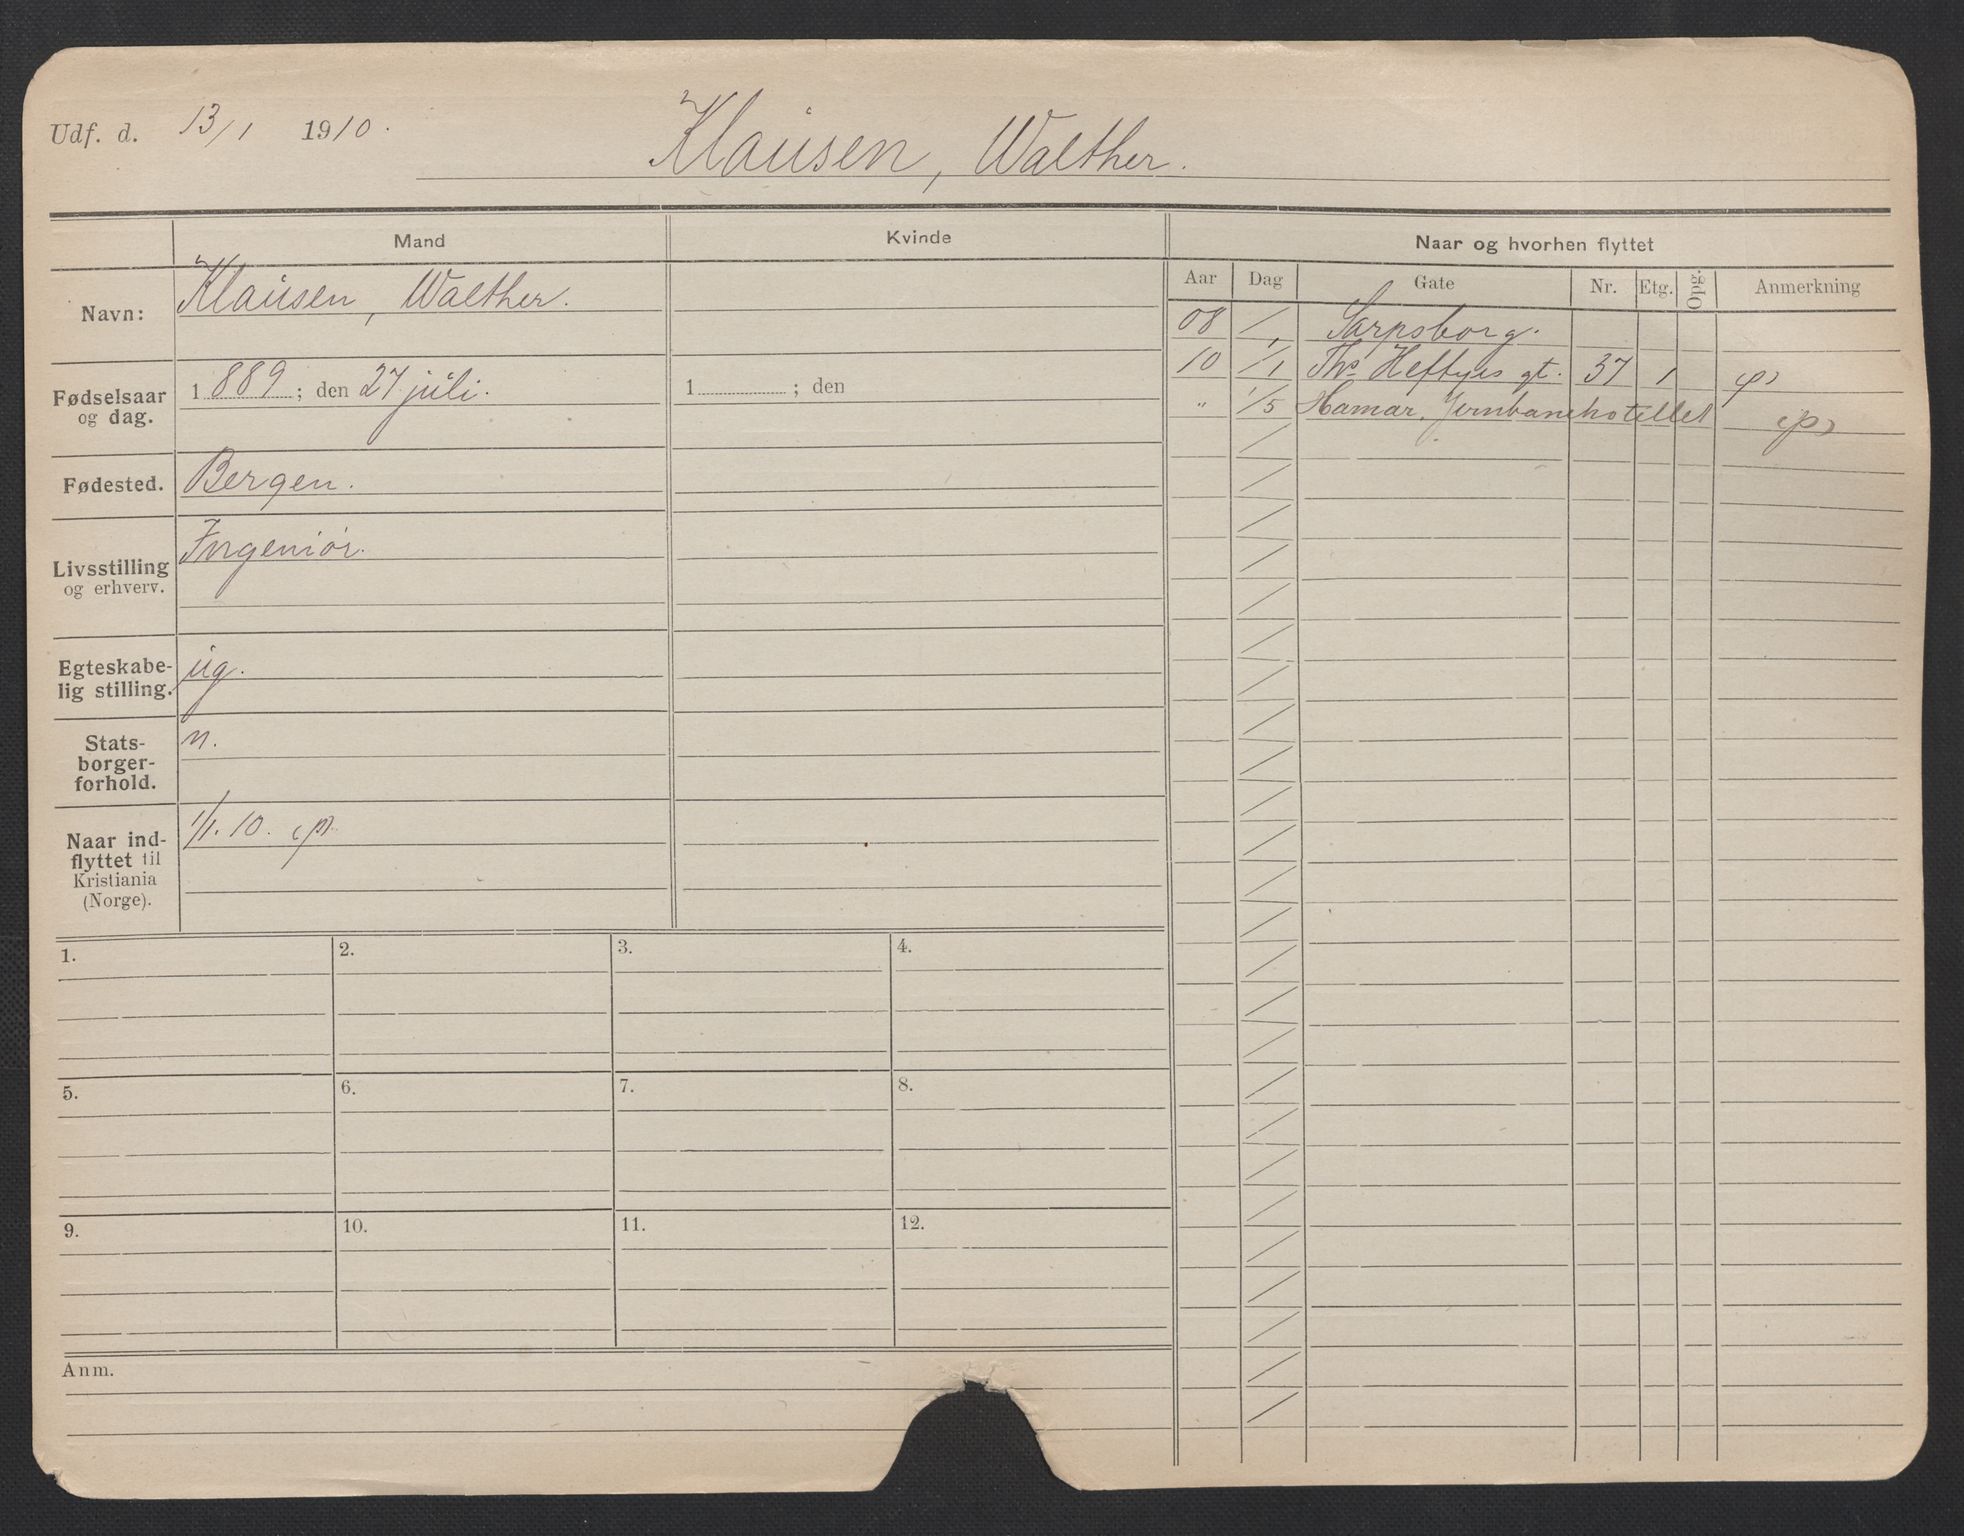 Udf. d. 13/1 1910.
Klausen, Walther.
Mand
Kvinde
Naar og hvorhen flyttet
Navn:
Klausen, Walther.
Fødselsaar
og dag.
1889; den 27 juli.
1 ; den
Fødested.
Bergen.
Livsstilling
og erhverv.
Ingeniør.
Egteskabe-
lig stilling.
ug.
Stats-
borger-
forhold.
n.
Naar ind-
flyttet til
Kristiania
(Norge).
1/1. 10. (p).
Aar Dag Gate Nr. Etg. Opg. Anmerkning
08 / Sarpsborg.
10 1/1 Ths Heftyes gt. 37 1 (p)
" 1/5 Hamar, Jernbanehotellet (p)
1. 2. 3. 4.
5. 6. 7. 8.
9. 10. 11. 12.
Anm.